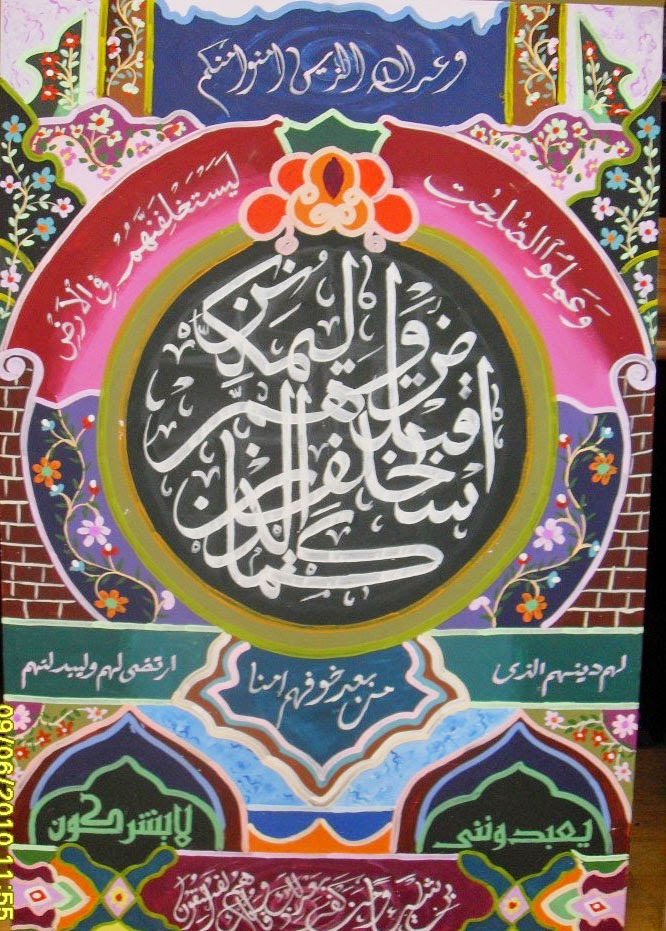 وعد الله الذين امنوا منكم
وَعَمِلُوا الصّٰلِحٰتِ
لَيَسْتَخْلِفَنَّهُمْ فِي الْأَرْضِ
كما استخلف الذين من قبلهم وليمكنن
لهم دينهم الذى
ارتضى لهم وليبدلنهم
من بعد خوفهم امنا
يعبدوننى
لا يشركون
بي شيئا ومن كفر هم الفسقون
09/06/2010 11:55